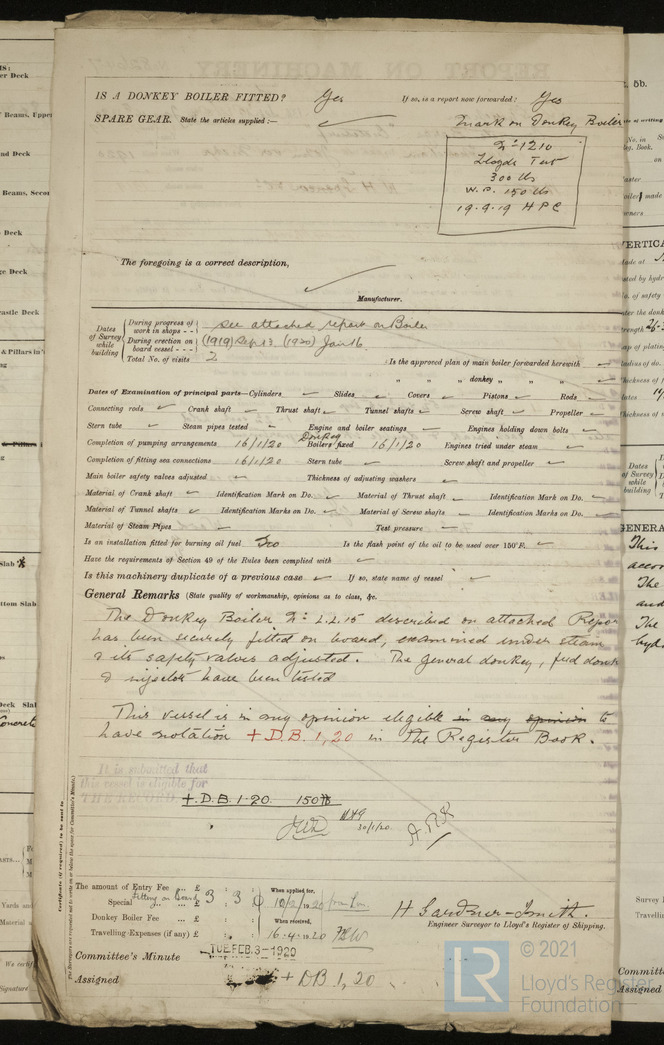 IS A DONKEY BOILER FITTED? Yes If so, is a report now forwarded? Yes
SPARE GEAR. State the articles supplied:—
Mark on Donkey Boiler
No 1210
Lloyds Test
300 lbs
W.P. 150 lbs
19.9.19 H P C
The foregoing is a correct description,
Manufacturer.
Dates of Survey while building
During progress of work in shops - - see attached report on Boiler
During erection on board vessel - - - (1919) Sep 13 (1920) Jan 16
Total No. of visits 2
Is the approved plan of main boiler forwarded herewith
" " " donkey " " "
Dates of Examination of principal parts—Cylinders Slides Covers Pistons Rods
Connecting rods Crank shaft Thrust shaft Tunnel shafts Screw shaft Propeller
Stern tube Steam pipes tested Engine and boiler seatings Engines holding down bolts
Completion of pumping arrangements 16/1/20 Donkey Boilers fixed 16/1/20 Engines tried under steam
Completion of fitting sea connections 16/1/20 Stern tube Screw shaft and propeller
Main boiler safety valves adjusted Thickness of adjusting washers
Material of Crank shaft Identification Mark on Do. Material of Thrust shaft Identification Mark on Do.
Material of Tunnel shafts Identification Marks on Do. Material of Screw shafts Identification Marks on Do.
Material of Steam Pipes Test pressure
Is an installation fitted for burning oil fuel No Is the flash point of the oil to be used over 150°F.
Have the requirements of Section 49 of the Rules been complied with
Is this machinery duplicate of a previous case If so, state name of vessel
General Remarks (State quality of workmanship, opinions as to class, &c.
The Donkey Boiler No described on attached Repor
has been securely fitted on board, examined under steam
& its safety valves adjusted. The general donkey, feed donk
& injector have been tested
This vessel is in my opinion eligible in my opinion to
have notation + D.B. 1,20 in the Register Book.
It is submitted that
this vessel is eligible for
THE RECORD. + D.B. 1-20. 150 lb
30/1/20
The amount of Entry Fee ... £
Special Fitting on Board ... £ 3 : 3 : 0
Donkey Boiler Fee ... £
Travelling Expenses (if any) £
When applied for,
10/2/1920
When received,
16.4.1920
H Gardner-Smith.
Engineer Surveyor to Lloyd's Register of Shipping.
Committee's Minute TUE. FEB. 3-1920
Assigned + DB 1,20
© 2021
LR Lloyd's Register
Foundation